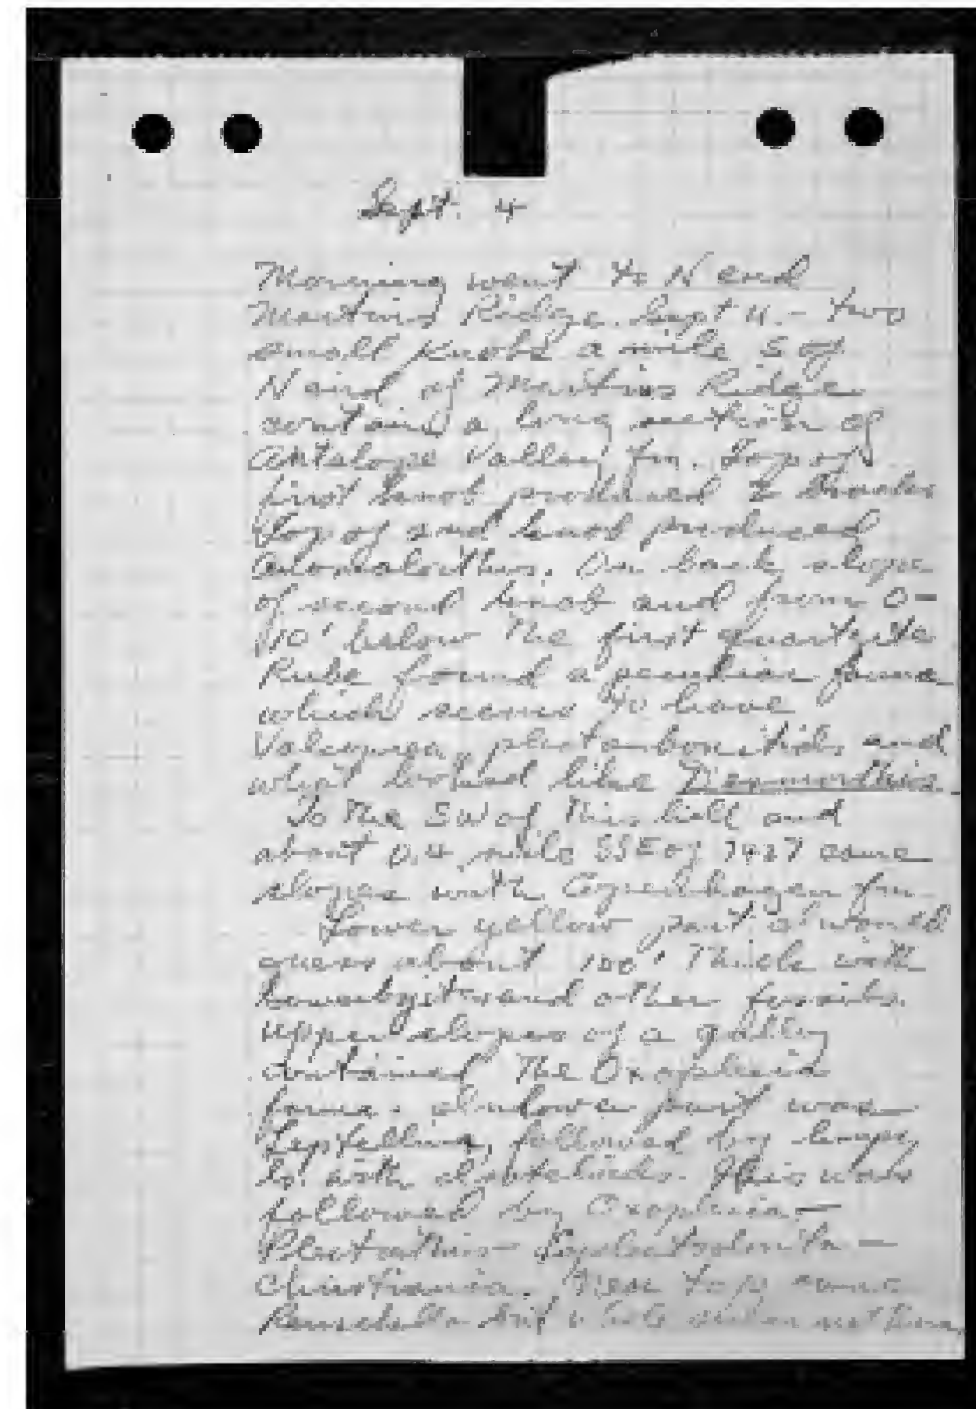 Sept. 4
Morning went to N end
Martins Ridge. Sept 4. - two
small knobs a mile S of
N end of Martins Ridge
contains a long section of
Antelope Valley fm. Top of
first knob produced
Top of 2nd knob produced
Anomalorthis. On back slope
of second knob and from 0-
10' below the first quartzite
Rube found a peculiar fauna
which seems to have
Valcourea, plectambonitids and
what looked like Desmorthis.
To the SW of this hill and
about 0.4 mile SSE of 7927 came
slopes with Copenhagen fm.
Lower yellow part
guess about 100' thick with
and other fossils.
Upper slopes of a gully
contained the Oxoplecia
fauna. part was
Leptellina, followed by
ls. with. This was
followed by Oxoplecia -
Plectorthis -
Christiania. Near top some